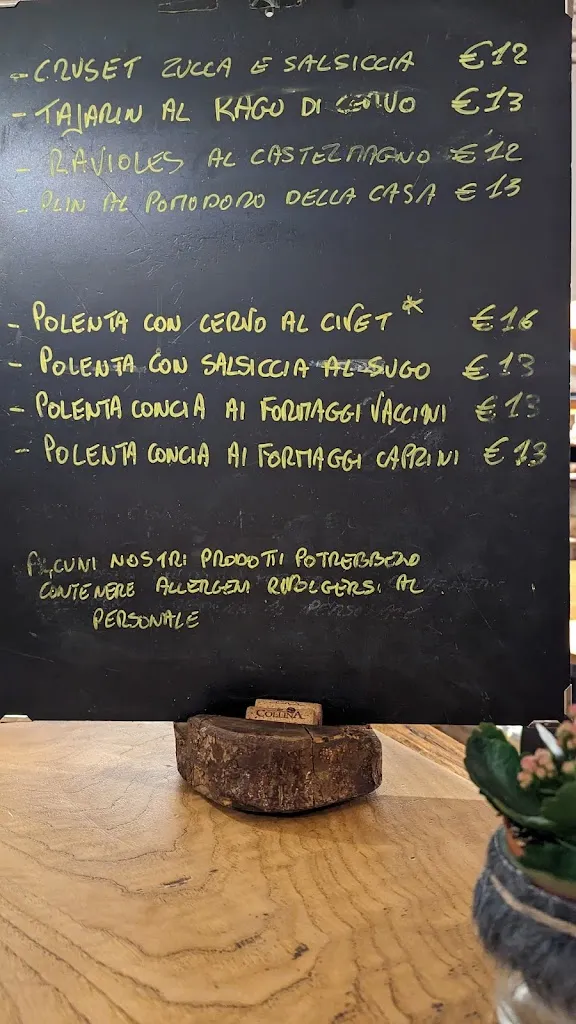 - CRUSET ZUCCA E SALSICCIA €12
- TAJARIN AL RAGU DI CERVO €13
- RAVIOLES AL CASTELMAGNO €12
- PLIN AL POMODORO DELLA CASA €13
- POLENTA CON CERVO AL CIVET * €16
- POLENTA CON SALSICCIA AL SUGO €13
- POLENTA CONCIA AI FORMAGGI VACCINI €13
- POLENTA CONCIA AI FORMAGGI CAPRINI €13
ALCUNI NOSTRI PRODOTTI POTREBBERO
CONTENERE ALLERGENI RIVOLGERSI AL
PERSONALE
COLLINA